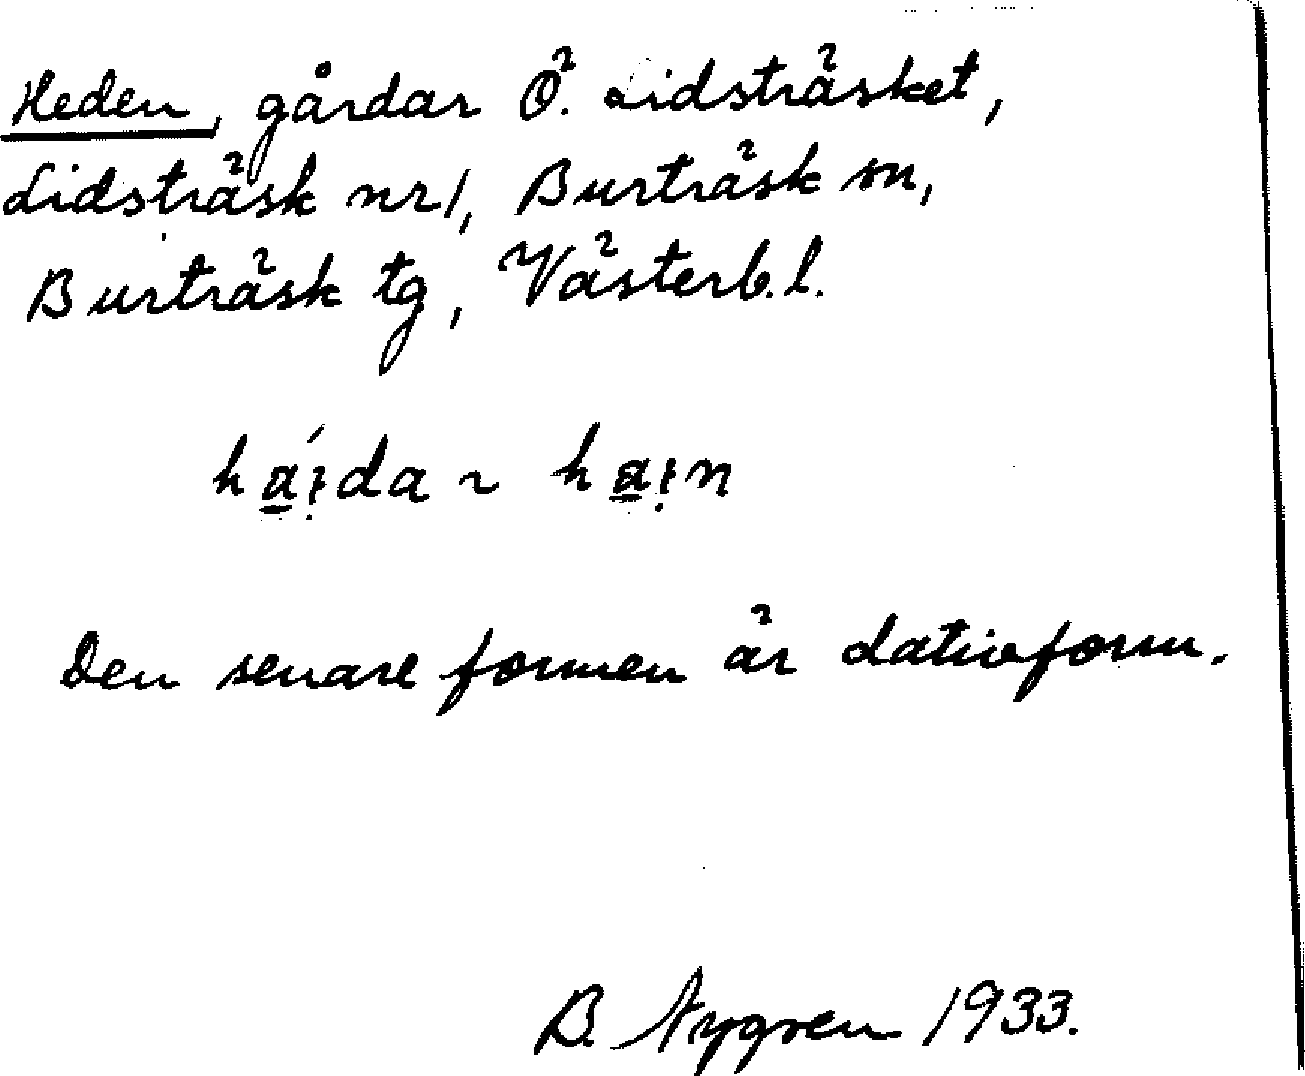 Heden, gårdar Ö. Lidsträsket,
Lidsträsk nr 1, Burträsk sn,
Burträsk tg, Västerb. l.
ha̲i̯da ~ ha̲i̯n
Den senare formen är dativform.
B. Nygren 1933.